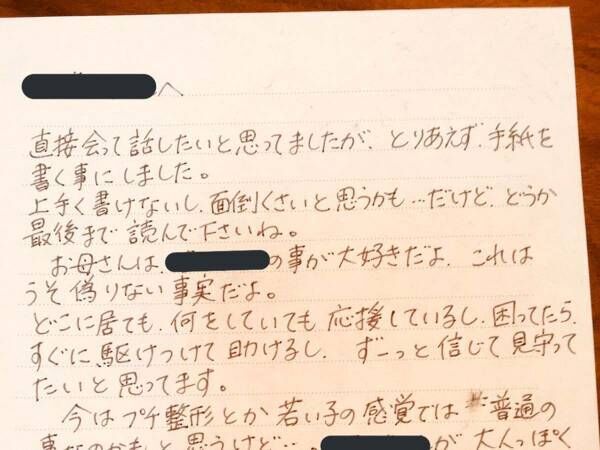 へ
直接会って話したいと思ってましたが、とりあえず、手紙を
書く事にしました。
上手く書けないし、面倒くさいと思うかも…だけど、どうか
最後まで読んで下さいね。
お母さんは、の事が大好きだよ、これは
うそ偽りない事実だよ。
どこに居ても、何をしていても応援しているし、困ってたら、
すぐに駆けつけて助けるし、ずーっと信じて見守って
たいと思ってます。
今はプチ整形とか若い子の感覚では普通の
事なのかもと思うけど…、が大人っぽく